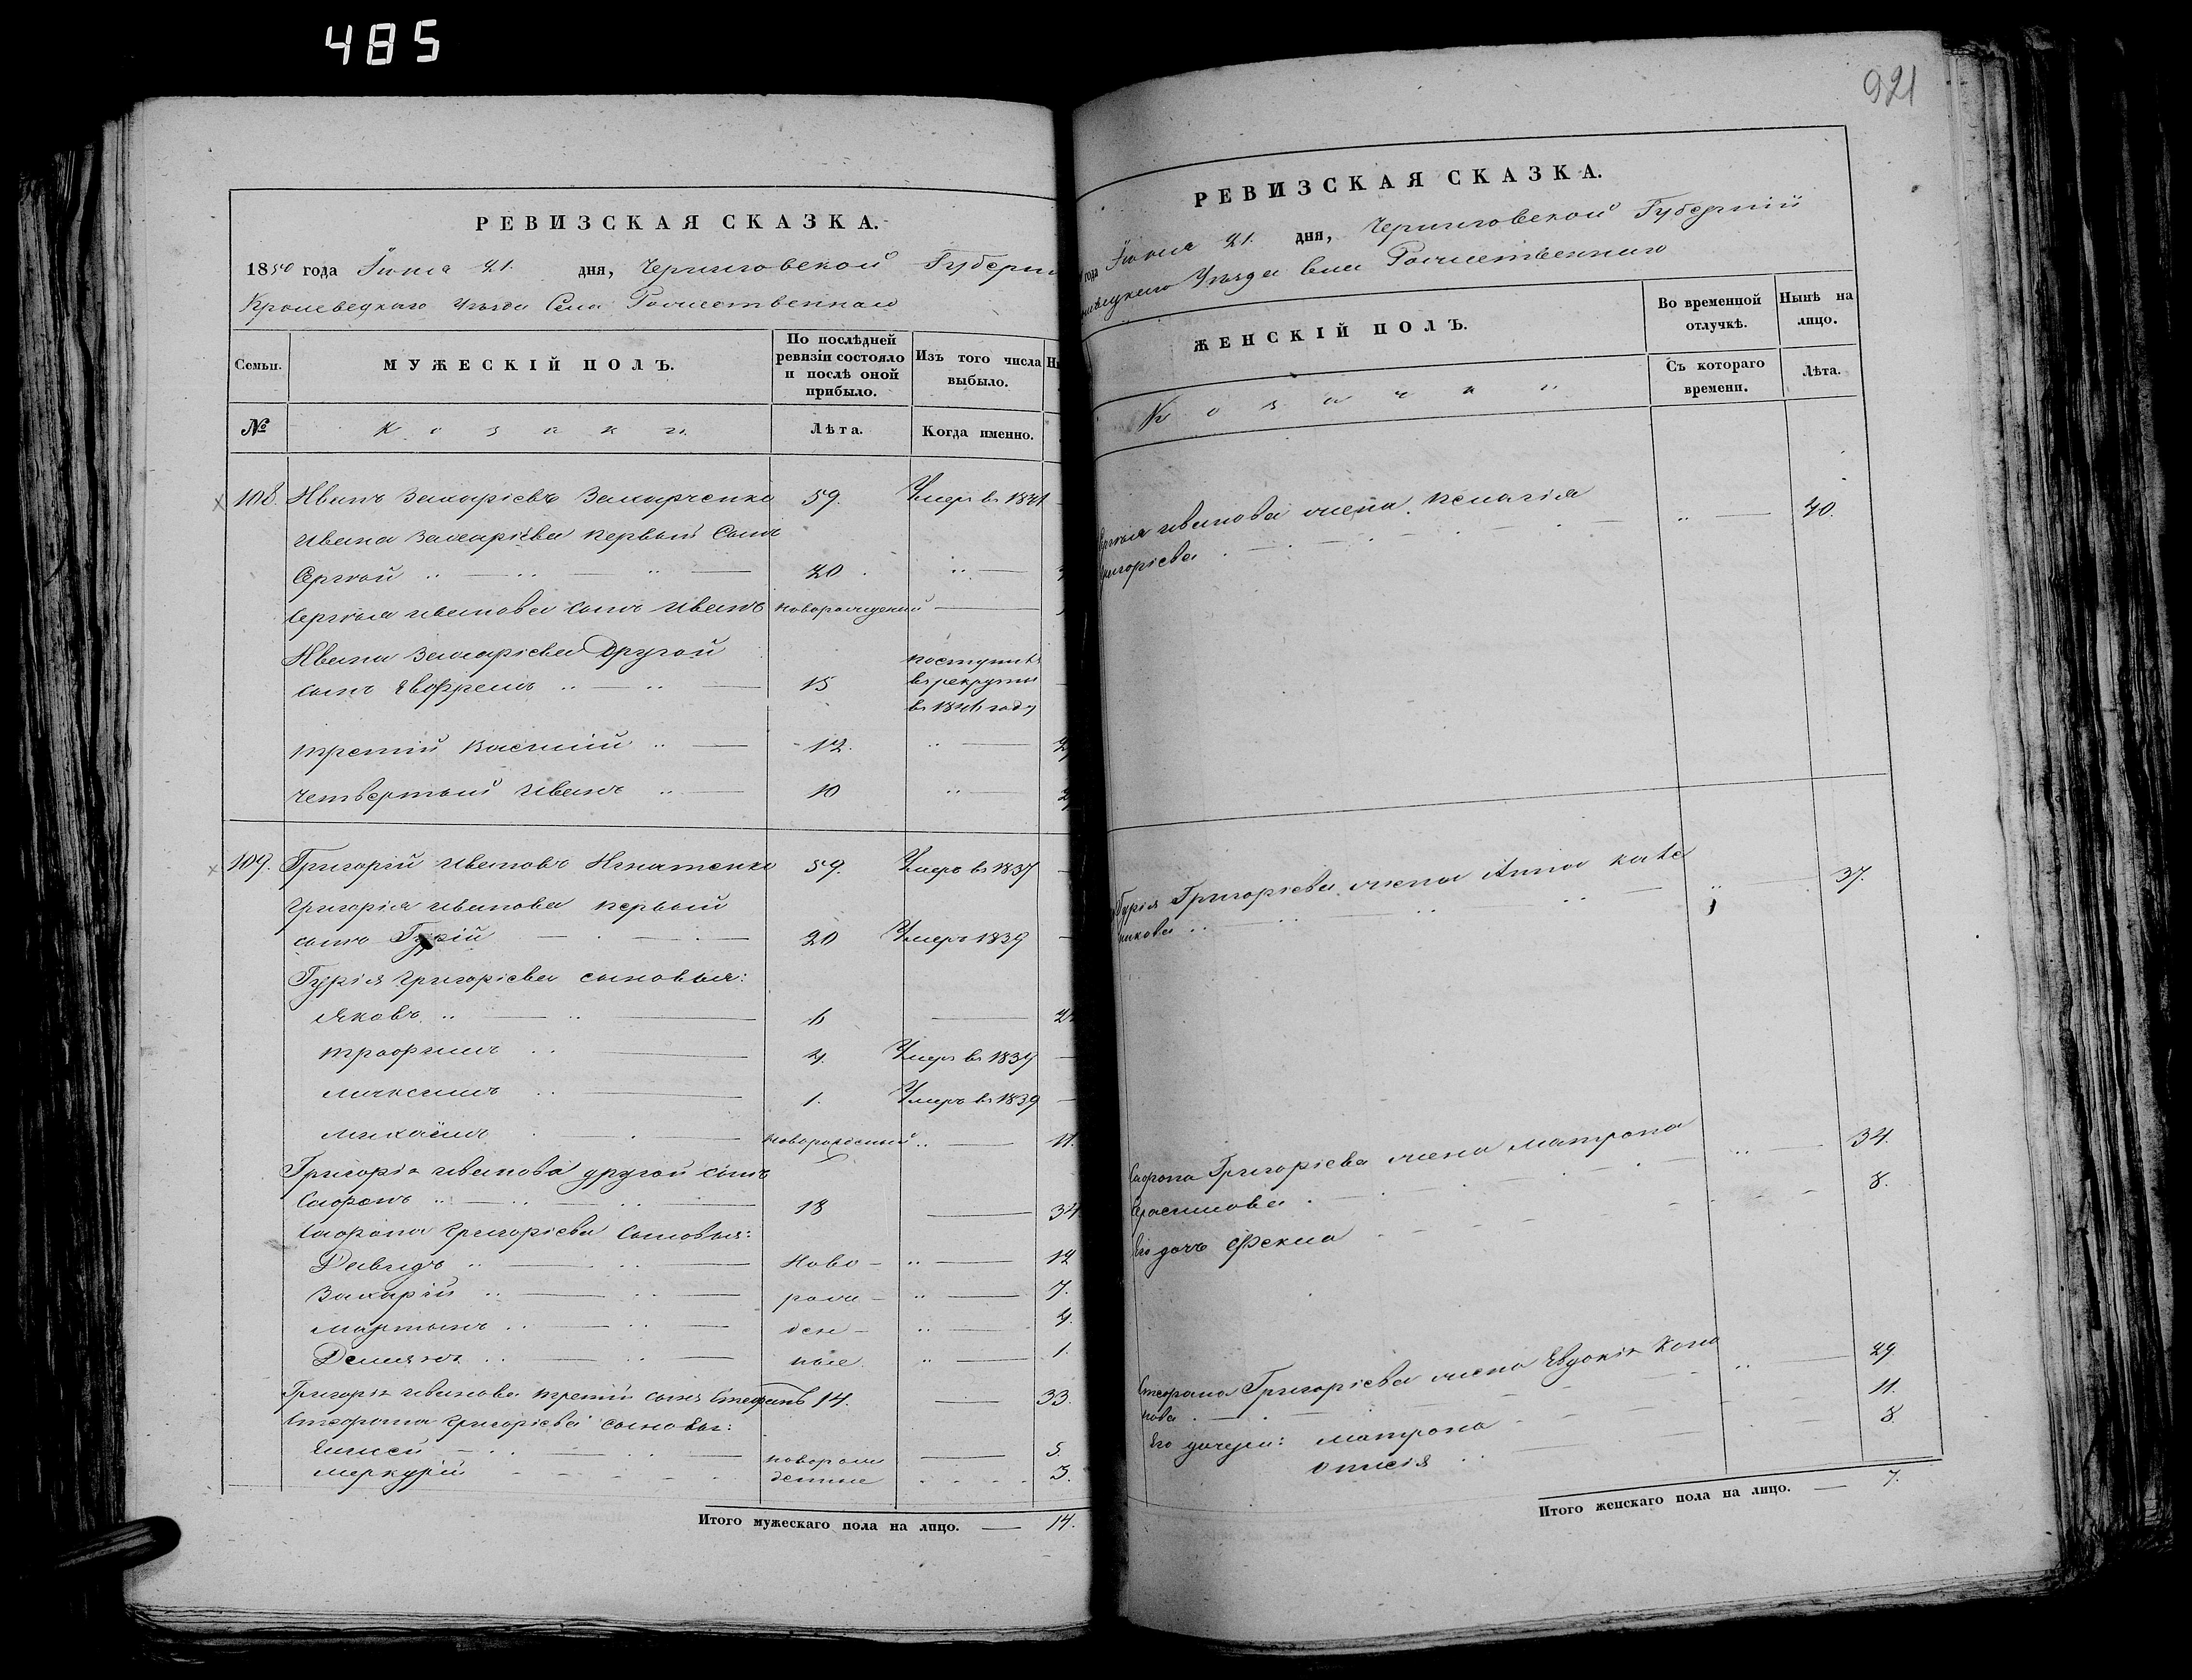 485
РЕВИЗСКАЯ СКАЗКА.
1850 года Іюня 21. дня, Черниговской Губерни
Кролевецкаго Уѣзда Села Рождественнаго
Семьи.
МУЖЕСКІЙ ПОЛЪ.
По послѣдней ревизіи состояло и послѣ оной прибыло.
Изъ того числа выбыло.
№
Козаки
Лѣта.
Когда именно.
108. Иванъ Захаріевъ Захарченко 59. Умеръ въ 1841
Ивана Захаріева первый сынъ
Сергѣй 20
Сергѣя Иванова сынъ Иванъ новорожденный
Ивана Захаріева Другой поступилъ
сынъ Евфремъ 15 въ рекруты
въ 1841 году
третій Василій 12.
четвертый Иванъ 10
109. Григорій Ивановъ Игнатенко 59. Умеръ въ 1837
Григорія Иванова первый
сынъ Гурій 20 Умеръ 1839
Гурія Григоріева сыновья:
Яковъ 6
Трофимъ 4. Умеръ въ 1834
Максимъ 1. Умеръ въ 1839
Михаилъ новорожденный 11.
Григорія Иванова другой сынъ
Сафонъ 18 34
Сафона Григоріева сыновья:
Давидъ Ново- 12
Захарій рож- 7.
Мартынъ ден- 4.
Демянъ ные 1.
Григорія Иванова третій сынъ Стефанъ 14. 33.
Стефана Григоріева сыновья:
Елисей новорож 5.
Меркурій денные 3.
Итого мужескаго пола на лицо. — 14.
921
РЕВИЗСКАЯ СКАЗКА.
года Іюня 21. дня, Черниговской Губерніи
Уѣзда села Рождественнаго
ЖЕНСКІЙ ПОЛЪ.
Во временной отлучкѣ.
Нынѣ на лицо.
Козачки
Съ котораго времени.
Лѣта.
Сергѣя Иванова жена Пелагія
Григоріева 40.
Гурія Григоріева жена Анна 37.
Сафона Григоріева жена Матрона 34.
Герасимова
Его дочь Фекла 8.
Стефана Григоріева жена Евдокія Коно 29.
нова
Его дочери: Матрона 11.
8.
Итого женскаго пола на лицо. — 7.